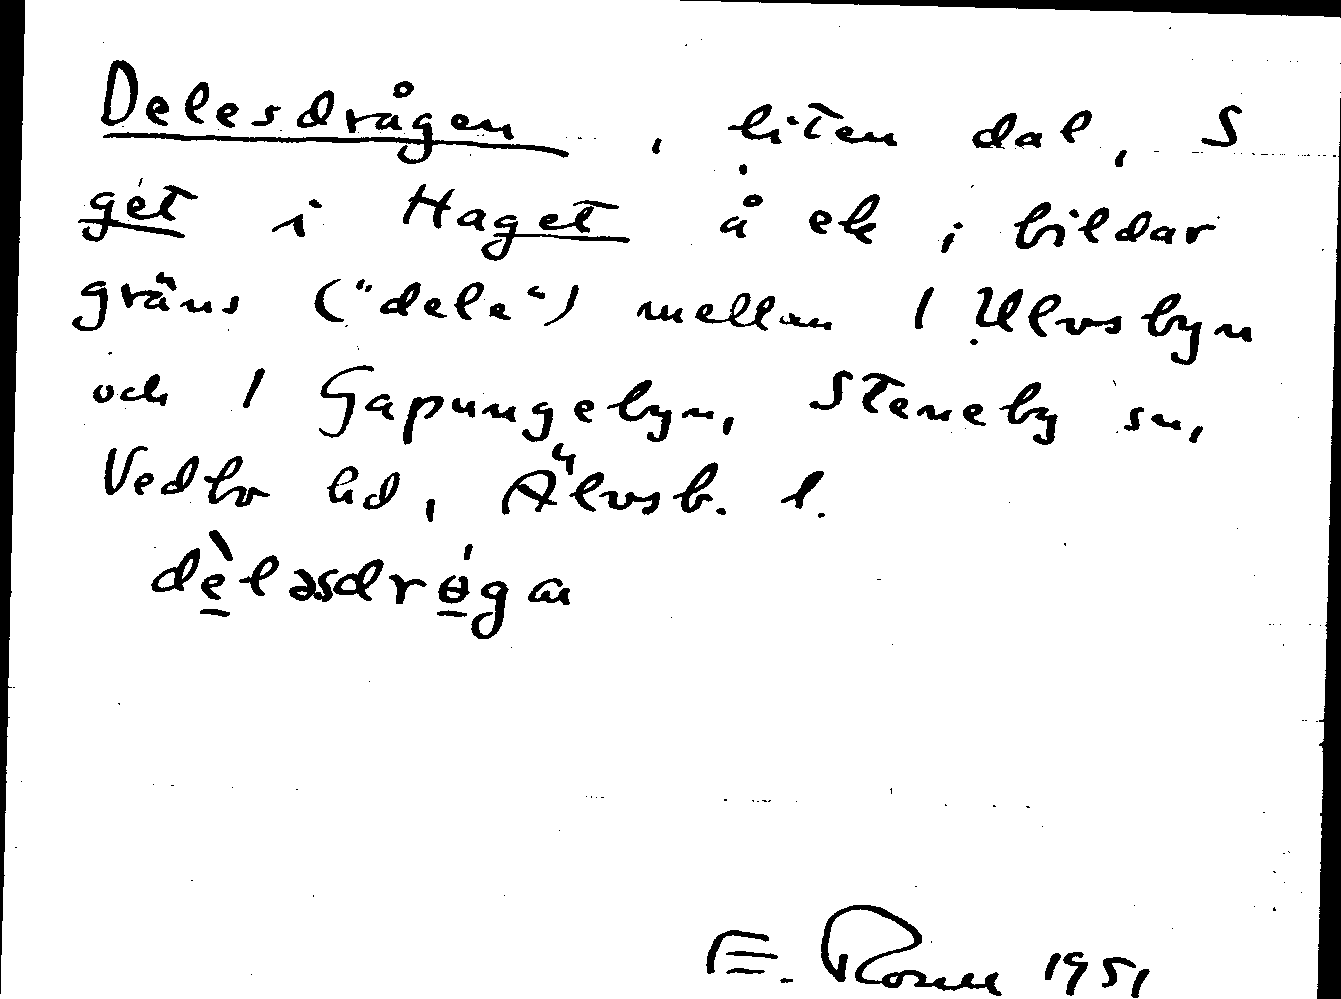 Delesdrågen, liten dal, S
get i Haget å ek, bildar
gräns ("dele") mellan 1 Ulvsbyn
och 1 Gapungebyn, Steneby sn,
Vedbo hd, Älvsb. l.
dè̱ləsdrɵ̱́gan
E. Rosell 1951